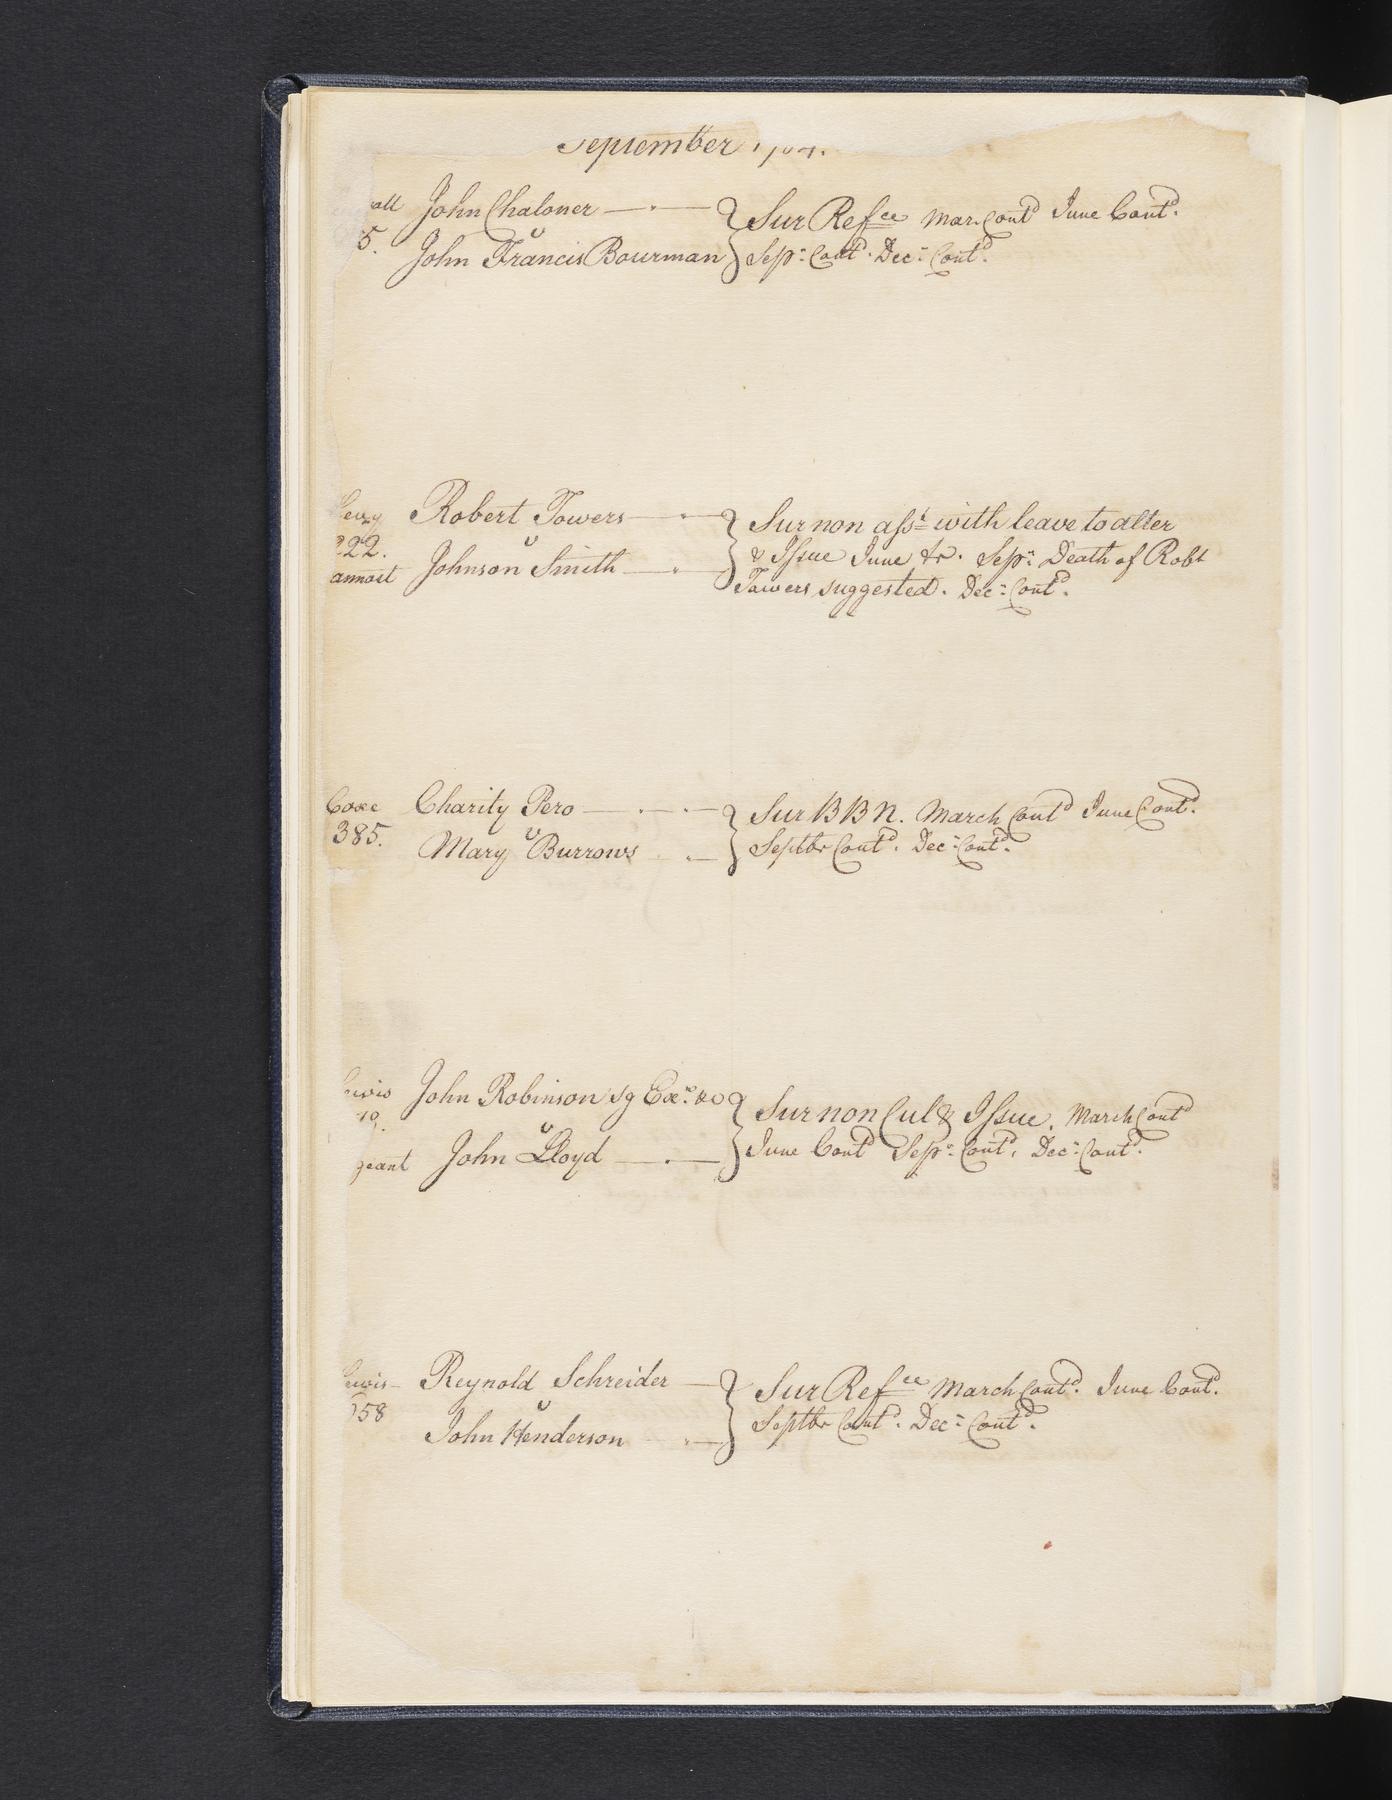 September 1784.
all John Chaloner
v
5. John Francis Bourman
Sur Refce Mar. Contd June Contd.
Sepr. Contd. Decr. Contd.
Levy Robert Towers
222. v
annost Johnson Smith
Sur non asst with leave to alter
& Issue June &c. Sepr. Death of Robt
Towers suggested. Decr. Contd.
Coxe Charity Pero
v
385. Mary Burrows
Sur BBN. March Contd June Contd.
Septbr Contd. Decr. Contd.
ewis John Robinson sg Exr. &c
19. v
geant John Lloyd
Sur non Cul & Issue. March Contd
June Contd Sepr. Contd. Decr. Contd.
Lewis Reynold Schreider
158 v
John Henderson
Sur Refce March Contd. June Contd.
Septbr Contd. Decr. Contd.